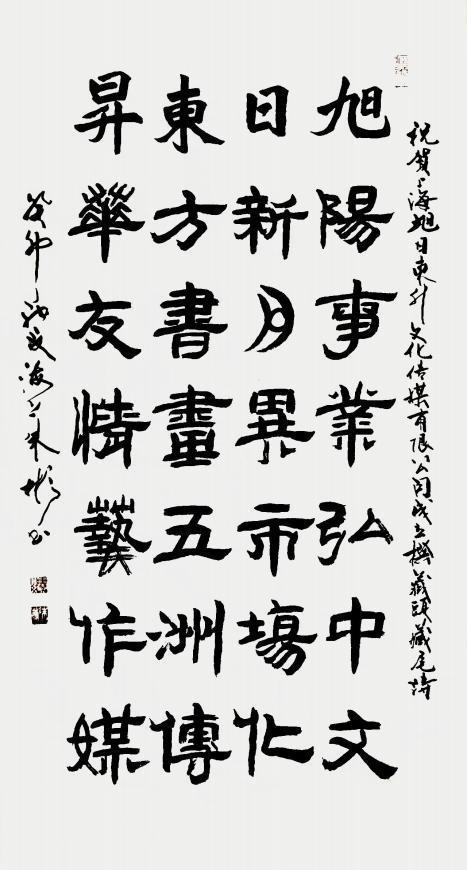 祝賀上海旭日東升文化传媒有限公司成立撰藏頭藏尾詩
旭陽事業弘中文
日新月異市塲化
東方書畫五洲傳
昇華友情藝作媒
癸卯海上朱彬书